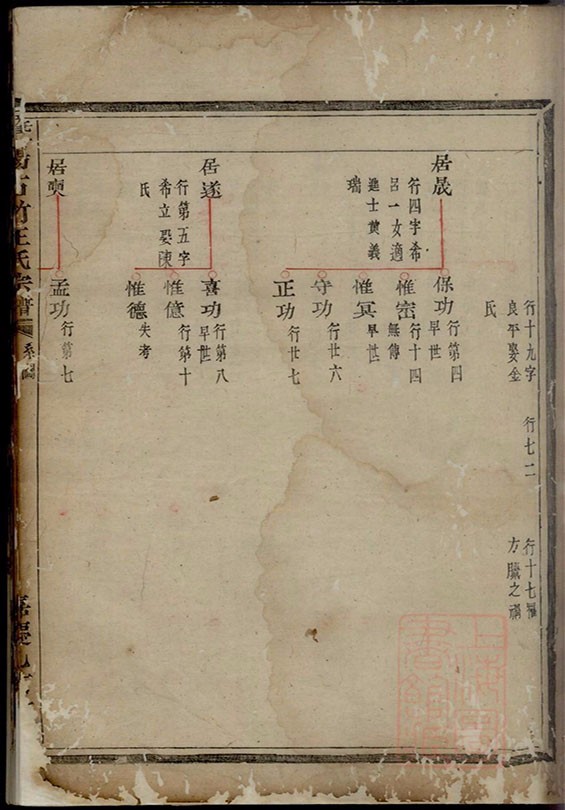 行十九字
良平娶金
氏
行七二
行十七福
方臘之禍
居晟
行四字希
呂一女適
進士黄義
瑞
保功
行第四
早世
惟密
行十四
無傳
惟冥
早世
守功
行廿六
正功
行廿七
居遂
行第五字
希立娶陳
氏
喜功
行第八
早世
惟億
行第十
惟德
失考
居奭
孟功
行第七
石竹王氏宗譜
系圖